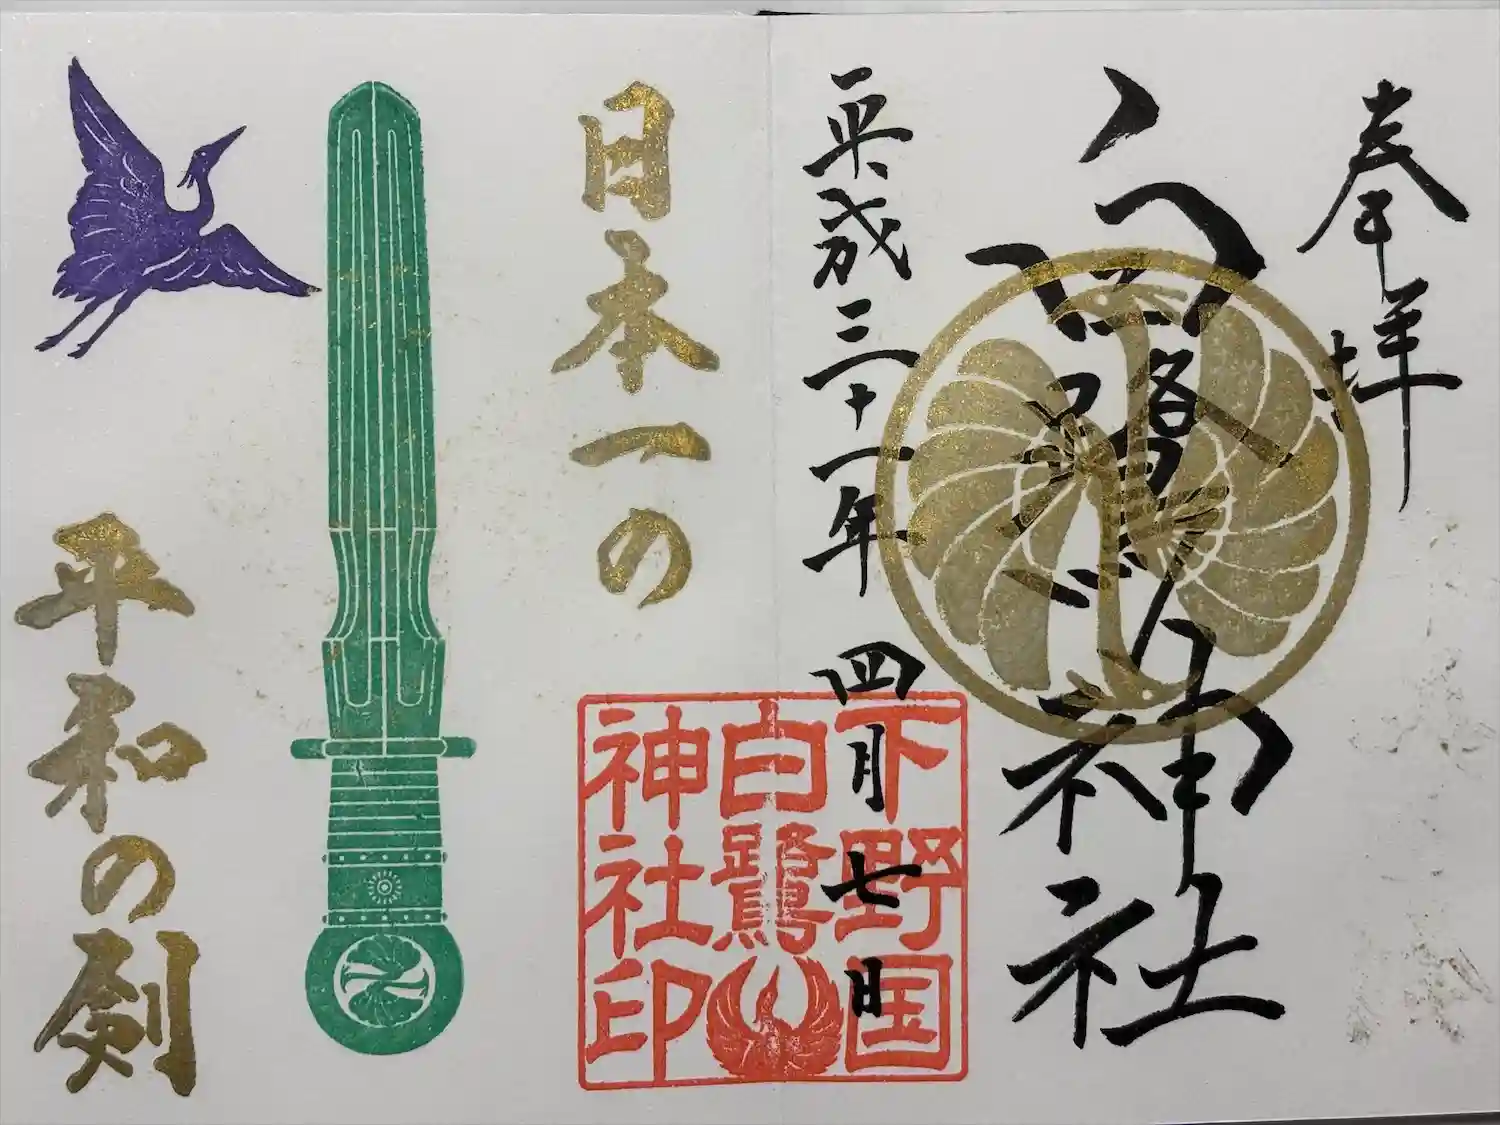 奉拝
白鷺神社
平成三十一年 四月 七日
下野国
白鷺
神社印
日本一の
平和の剣